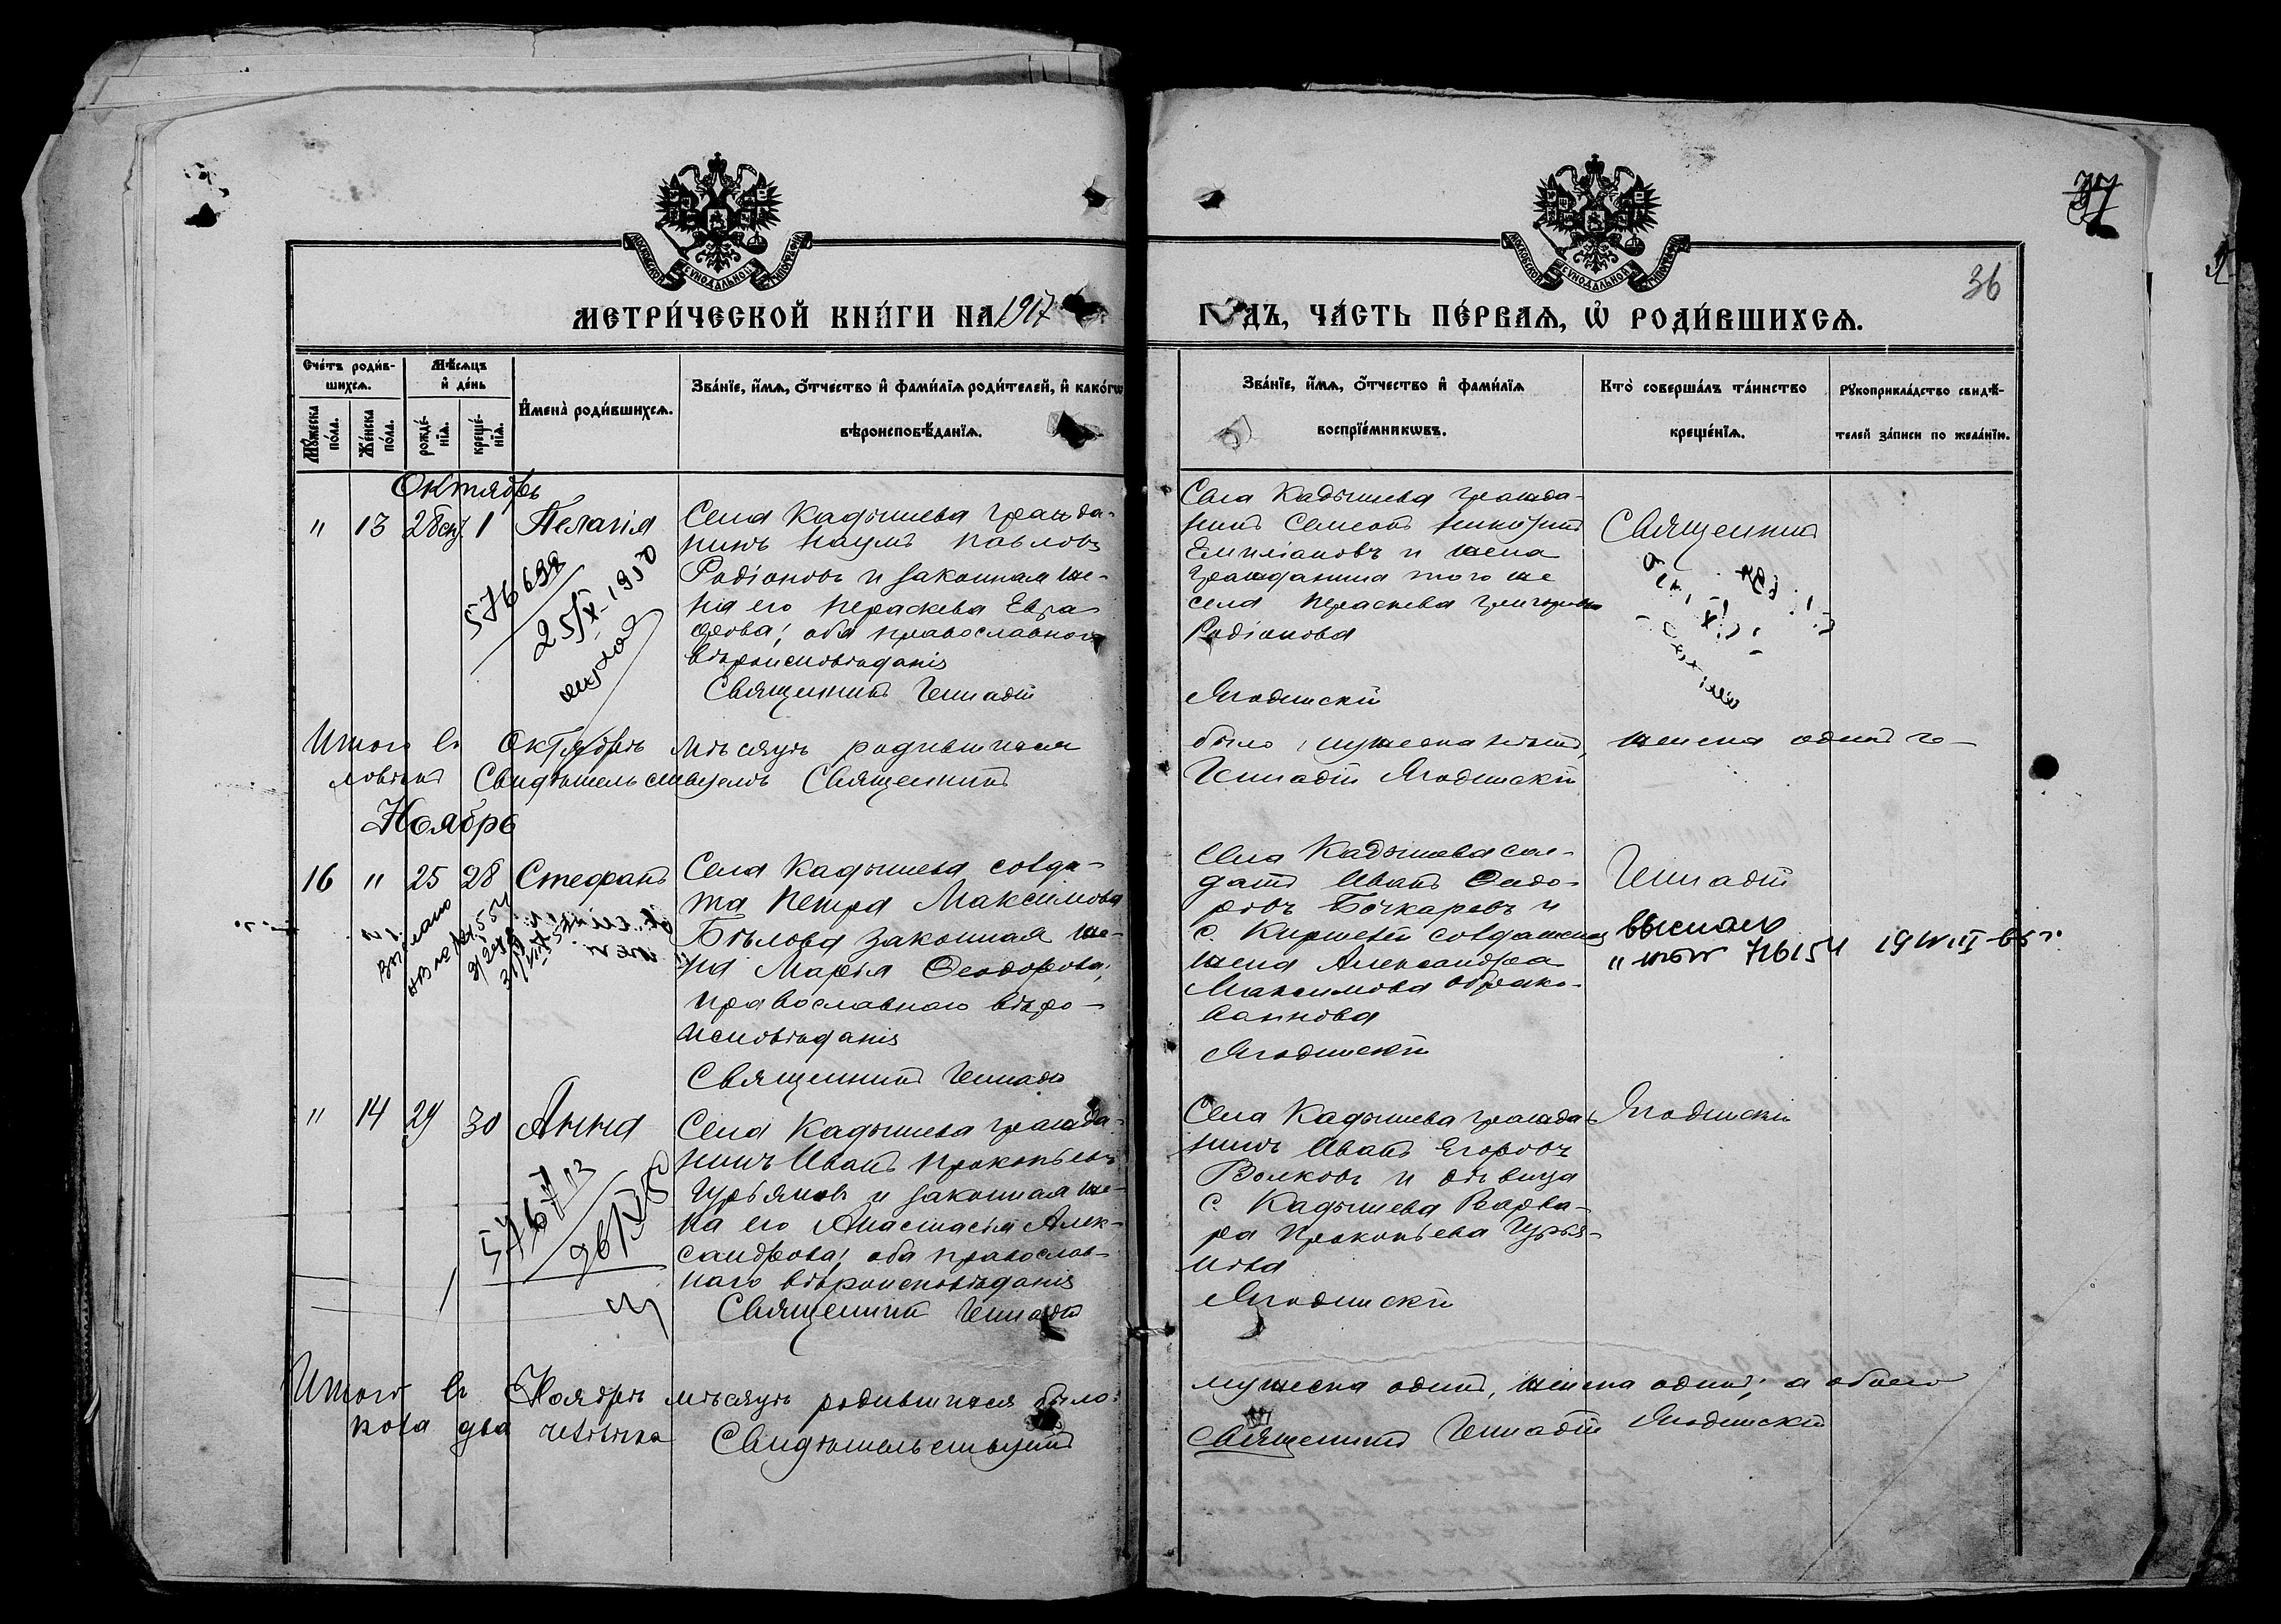 МЕТРИ́ЧЕСКОЙ КНИ́ГИ НА 1917
ГОДЪ, ЧА́СТЬ ПЕ́РВАѦ, Ѡ҆ РОДИ́ВШИХСѦ.
37
36
Сче́тъ роди́в-
шихсѧ.
Мꙋ́жеска по́ла.
Же́нска по́ла.
Мѣ́сѧцъ
и҆ де́нь
рожде́-
нїѧ.
креще́-
нїѧ.
И҆мена̀ роди́вшихсѧ.
Зва́нїе, и҆́мѧ, ѻ҆́тчество и҆ фами́лїѧ роди́телей, и҆ како́гѡ
вѣроисповѣ́данїѧ.
Зва́нїе, и҆́мѧ, ѻ҆́тчество и҆ фами́лїѧ
воспрїе́мникѡвъ.
Кто̀ соверша́лъ та́инство
креще́нїѧ.
Рꙋкоприкла́дство свидѣ́-
телей за́писи по жела́нїю.
Октябрь
" 13 28 сент. 1 Пелагія
Села Кадышева гражда-
нинъ Наумъ Павловъ
Родіоновъ и законная же-
на его Параскева Евгра-
фова; оба православнаго
вѣроисповѣданія
Священникъ Геннадій
576698
25/X-1950
Села Кадышева гражда-
нинъ Симеонъ
Емиліановъ и жена
гражданина того же
села Параскева Григорьева
Родіонова
Ягодинскій
Священникъ
Итого въ Октябрѣ мѣсяцѣ родившихся
было: мужеска нѣтъ, женска одинъ че-
ловѣкъ Свидѣтельствуемъ Священникъ
Геннадій Ягодинскій
Ноябрь
16 " 25 28 Стефанъ
Села Кадышева солда-
та Петра Максимова
Бѣлова законная же-
на Марія Ѳеодорова;
православнаго вѣро-
исповѣданія
Священникъ Геннадій
Села Кадышева сол-
датъ Иванъ Ѳедо-
ровъ Бочкаревъ и
с. солдатская
жена Александра
Максимова
Ягодинскій
Геннадій
выслано
71615
" 14 29 30 Анна
Села Кадышева гражда-
нинъ Иванъ Прокопьевъ
Гурьяновъ и законная же-
на его Анастасія Алек-
сандрова; оба православ-
наго вѣроисповѣданія
Священникъ Геннадій
Села Кадышева гражда-
нинъ Иванъ Егоровъ
Волковъ и дѣвица
с. Кадышева Варва-
ра Прокопьева Гурья-
нова
Ягодинскій
Ягодинскій
Итого въ Ноябрѣ мѣсяцѣ родившихся было:
мужеска одинъ, женска одинъ; а обоего
пола два человѣка Свидѣтельствуемъ
Священникъ Геннадій Ягодинскій